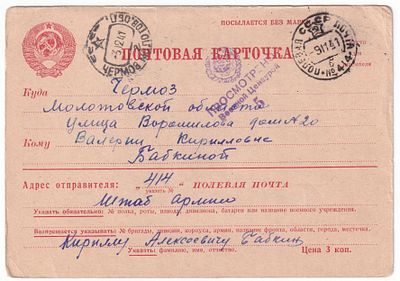 ПОСЫЛАЕТСЯ БЕЗ МАР
ПОЧТОВАЯ КАРТОЧКА
ЧЕРМОЗ
ПРОСМОТРЕНО
Военной Цензурой
5
СССР ПОЧТА
ПОЛЕВАЯ
№ 414
Куда Чермоз
Молотовской области
улица Ворошилова дом №20
Кому Валерии Кирилловне
Бабкиной
Адрес отправителя: "414" ПОЛЕВАЯ ПОЧТА
указать №
Штаб армии
Указать обязательно: № полка, роты, взвода, дивизиона, батареи или название военного учреждения.
Воспрещается указывать: № бригады, дивизии, корпуса, армии, название фронта, области, города, местечка.
Кириллу Алексеевичу Бабкин
Указать: фамилию, имя, отчество.
Цена 3 коп.